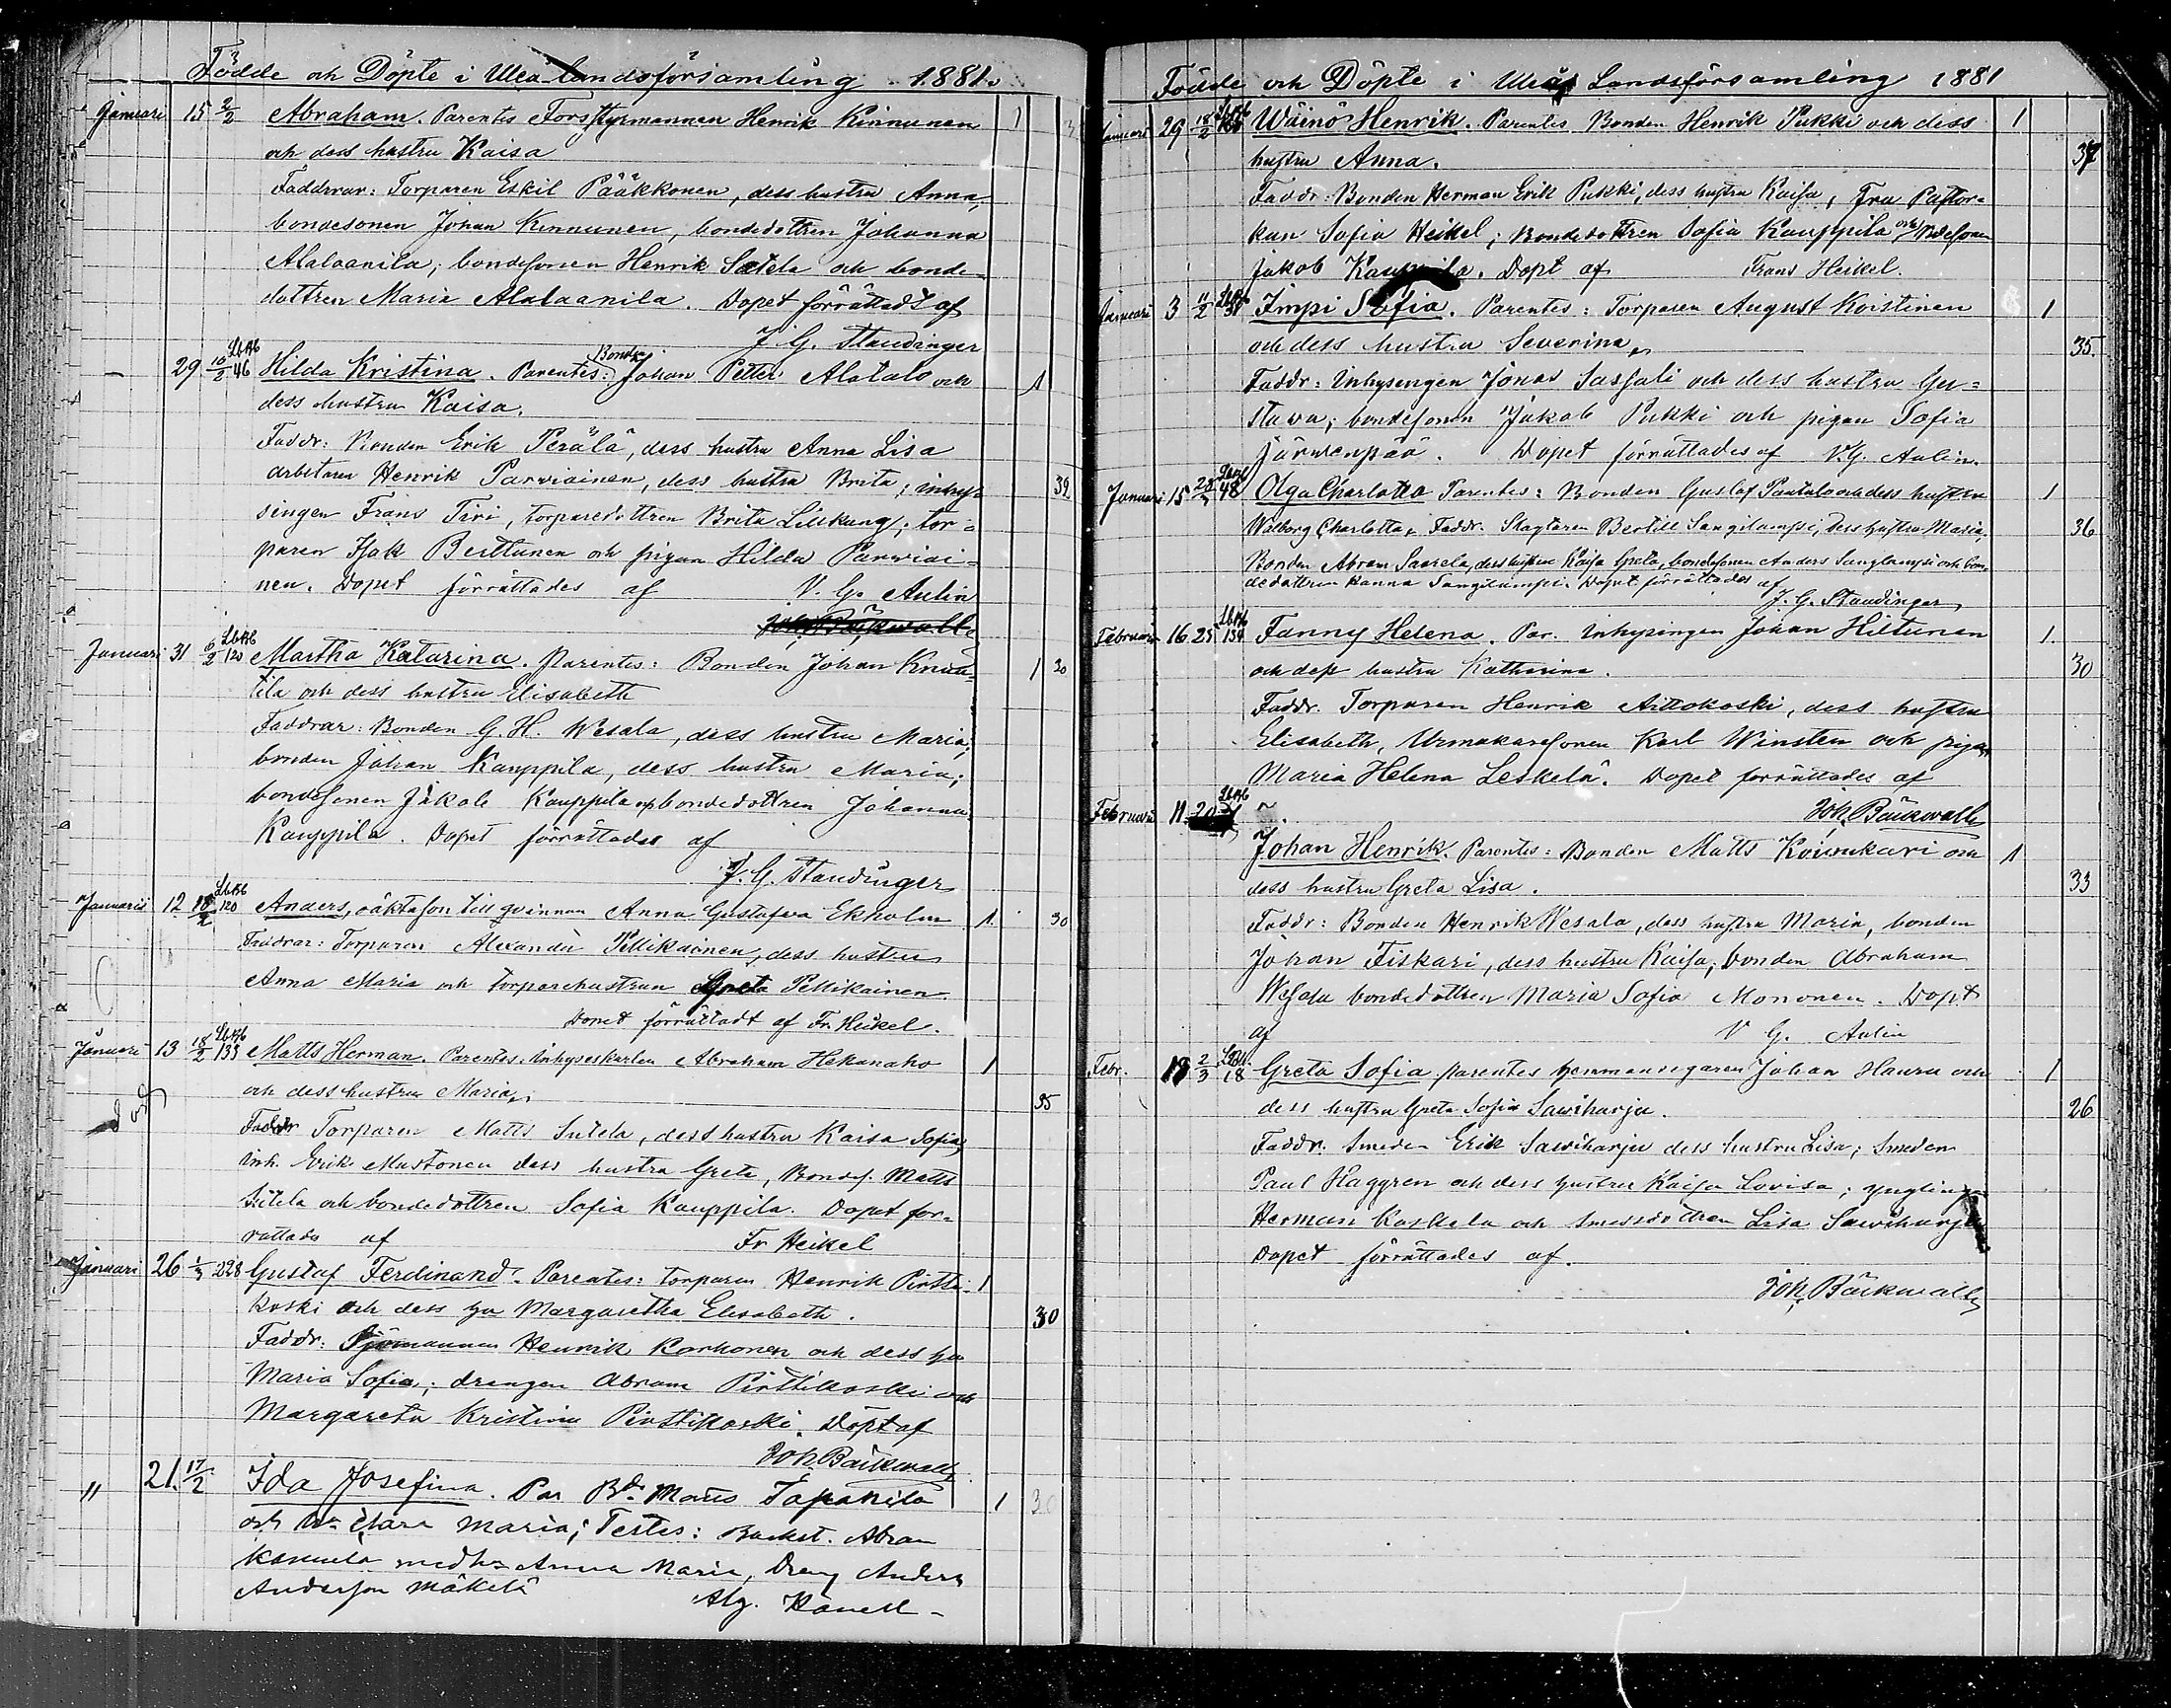 Födde och Döpte i Uleå landsförsamling 1881.
Januari 15 2/2 Abraham. Parentes Forsstyrmannen Henrik Kinnunen 1
och dess hustru Kaisa
Faddrrar: Torparen Eskil Pääkkonen, dess hustru Anna,
bondesonen Johan Kinnunen, bondedottren Johanna
Alalaanila; bondesonen Henrik Satela och bonde-
dottren Maria Alalaanila. Dopet förrättadt af
J. G. Staudinger
29 10/2 LbAb 46 Hilda Kristina. Parentes: Bond. Johan Petter Alatalo och 1
dess hustru Kaisa.
Faddr: Bonden Erik Perälä, dess hustru Anna Lisa
arbetaren Henrik Parviainen, dess hustru Brita; inhy- 39
singen Frans Tiri, torparedottren Brita Liukung; tor-
paren Isak Berttunen och pigan Hilda Parwiai-
nen. Dopet förrättades af V. G. Aulin
Joh. Bäckwall
Januari 31 6/2 LbAb 120 Martha Katarina. Parentes: Bonden Johan Knuu- 1 30
tila och dess hustru Elisabeth
Faddrar: Bonden G. H. Wesala, dess hustru Maria,
bonden Johan Kauppila, dess hustru Maria;
bondesonen Jakob Kauppila o bondedottren Johanna
Kauppila. Dopet förrättades af
J. G. Staudinger
Januarii 12 18/2 LbAb 120 Anders, oäkta son till qvinnan Anna Gustafva Ekholm 1. 30
Faddrar: Torparen Alexander Pellikainen, dess hustru
Anna Maria och torparehustrun Greta Pellikainen.
Dopet förrättadt af Fr. Heikel.
Januari 13 18/2 LbAb 133 Matts Herman. Parentes: Inhyseskarlen Abraham Hekanaho 1
och dess hustru Maria. 35
död
Faddr Torparen Matts Sutela, dess hustru Kaisa Sofia,
inh. Erik Mustonen dess hustru Greta, Bondes. Matts
Sutela och bondedottren Sofia Kauppila. Dopet för-
rättades af Fr Heikel
Januari 26 1/3 228 Gustaf Ferdinand. Parentes: torparen Henrik Pirtti- 1
koski och dess hu Margaretha Elisabeth. 30
Faddr: Sjömannen Henrik Korhonen och dess hu
Maria Sofia; drengen Abram Pirttikoski och
Margareta Kristina Pirttikoski. Döpt af
Joh. Bäckwall
" 21. 17/2 Ida Josefina. Par Bd Matts Tapanila 1 30
och hu Clara Maria; Testes: Backst. Abram
med hu Anna Maria, Dreng Anders
Andersson Mäkelä Alg.
Födde och Döpte i Uleå Landsförsamling 1881
Januari 29 18/2 LbAb Wäinö Henrik. Parentes Bonden Henrik Pukki och dess 1
hustru Anna. 37
Faddr: Bonden Herman Erik Pukki, dess hustru Kaisa, Fru Pastor-
skan Sofia Heikel; Bondedottren Sofia Kauppila och Bdesonen
Jakob Kauppila. Döpt af Frans Heikel.
Januari 3 11/2 31 Impi Sofia. Parentes: Torparen August Koistinen 1
och dess hustru Severina. 35.
Faddr: Inhysingen Jonas Sassali och dess hustru Gu-
stava; bondesonen Jakob Pukki och pigan Sofia
Järvenpää. Dopet förrättades af V. G. Aulin.
Januari 15 48 Olga Charlotta Parentes: Bonden Gustaf Pantalo och dess hustru 1
Walborg Charlotta, Faddr: Slagtaren Bertill Sangilampi; dess hustru Maria, 36
Bonden Abram Saarela, dess hustru Kaisa Greta, bondesonen Anders Sangilampi och bon-
dedottren Hanna Sangilampi. Dopet förrättades af
J. G. Staudinger
Februari 16 25 LbAb 134 Fanny Helena. Par. Inhysingen Johan Hiltunen 1.
och dess hustru Katharina. 30
Faddr. Torparen Henrik Aittokoski, dess hustru
Elisabeth, Urmakaresonen Karl Winsten och pigan
Maria Helena Leskelä. Dopet förrättades af
Joh. Bäckwall
Februari 11 20 LbAb
Johan Henrik. Parentes: Bonden Matts Koivukari och 1
dess hustru Greta Lisa. 33
Faddr: Bonden Henrik Wesala, dess hustru Maria, bonden
Johan Fiskari, dess hustru Kaisa; bonden Abraham
Wesala bondedottren Maria Sofia Mononen. Döpt
af V G. Aulin
Febr. 19 2/3 18 Greta Sofia parentes hemmansegaren Johan Hauru och 1
dess hustru Greta Sofia Sawiharju. 26
Faddr. Smeden Erik Sawiharju dess hustru Lisa; Smeden
Paul Häggren och dess hustru Kaisa Lovisa; ynglingen
Herman Koskela och smedsdottren Lisa Sawiharju
Dopet förrättades af.
Joh. Bäckwall